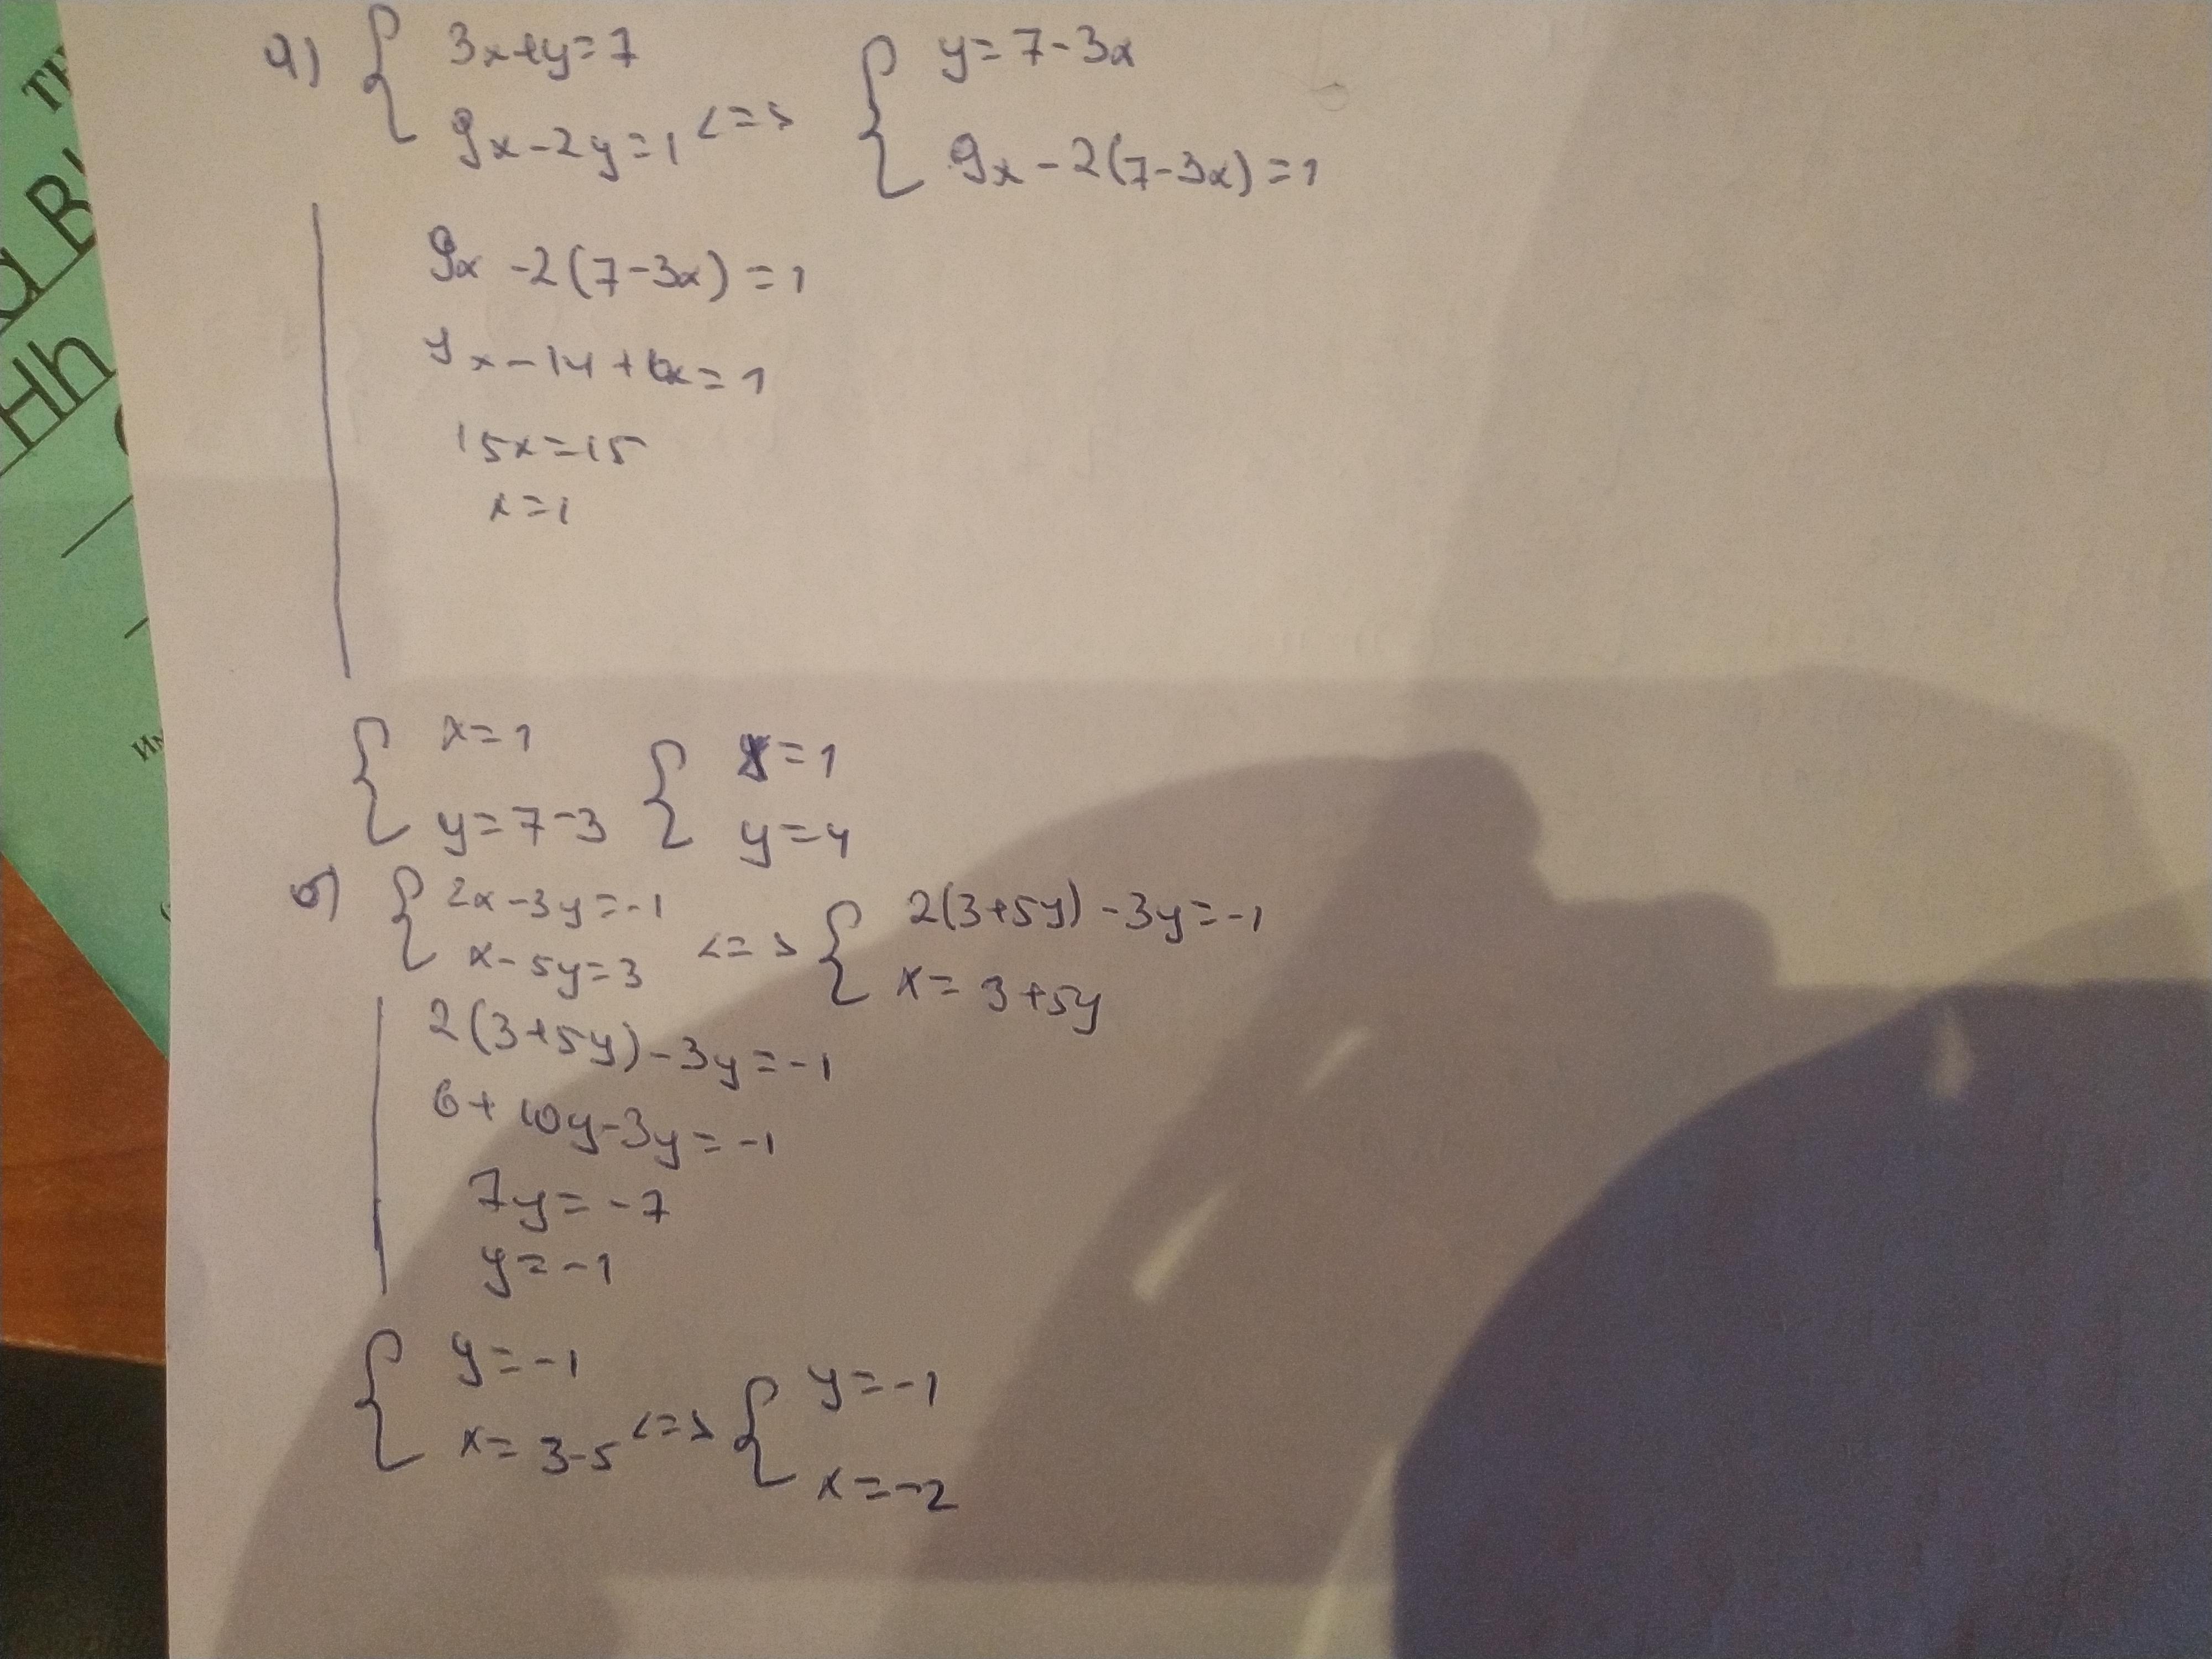 а) { 3x+y=7
9x-2y=1 <=> { y=7-3x
9x-2(7-3x)=1
9x-2(7-3x)=1
9x-14+6x=1
15x=15
x=1
{ x=1
y=7-3 { x=1
y=4
б) { 2x-3y=-1
x-5y=3 <=> { 2(3+5y)-3y=-1
x=3+5y
2(3+5y)-3y=-1
6+10y-3y=-1
7y=-7
y=-1
{ y=-1
x=3-5 <=> { y=-1
x=-2
Hh